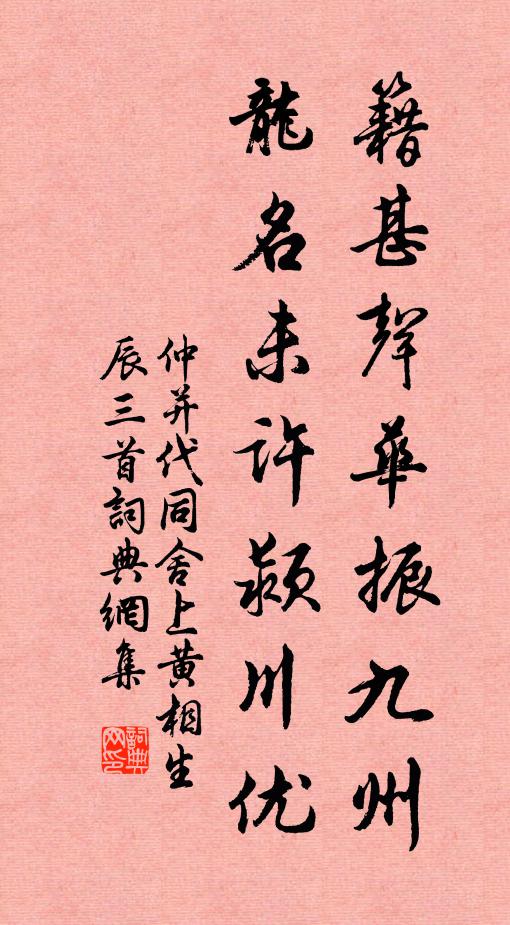 籍甚聲華振九州
龍名未許潁川优
仲并代同舍上黄相生
辰三首詞典網集
詞典网印